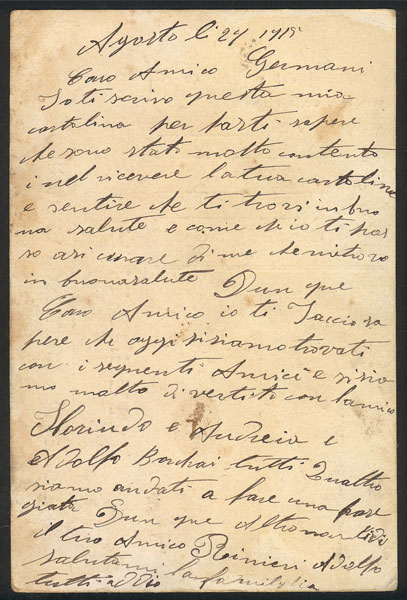 Agosto li 24 1915
Caro Amico Germani
Io ti scrivo questa mia
cartolina per farti sapere
che sono stato molto contento
i nel ricevere la tua cartolina
e sentire che ti trovi in buo
na salute e come ch io ti pos
so asicurare di me che mi trovo
in buona salute Dun que
Caro Amico io ti faccio sa
pere che oggi si siamo trovati
con i seguenti Amici e si sia
mo molto divertito con l'amico
Florindo e Andreia e
Adolfo tutti quattro
siamo andati a fare una pase
giata Dun que Altro non ti di
il tuo Amico Rinieri Adolfo
salutami la famiglia
tutti addio